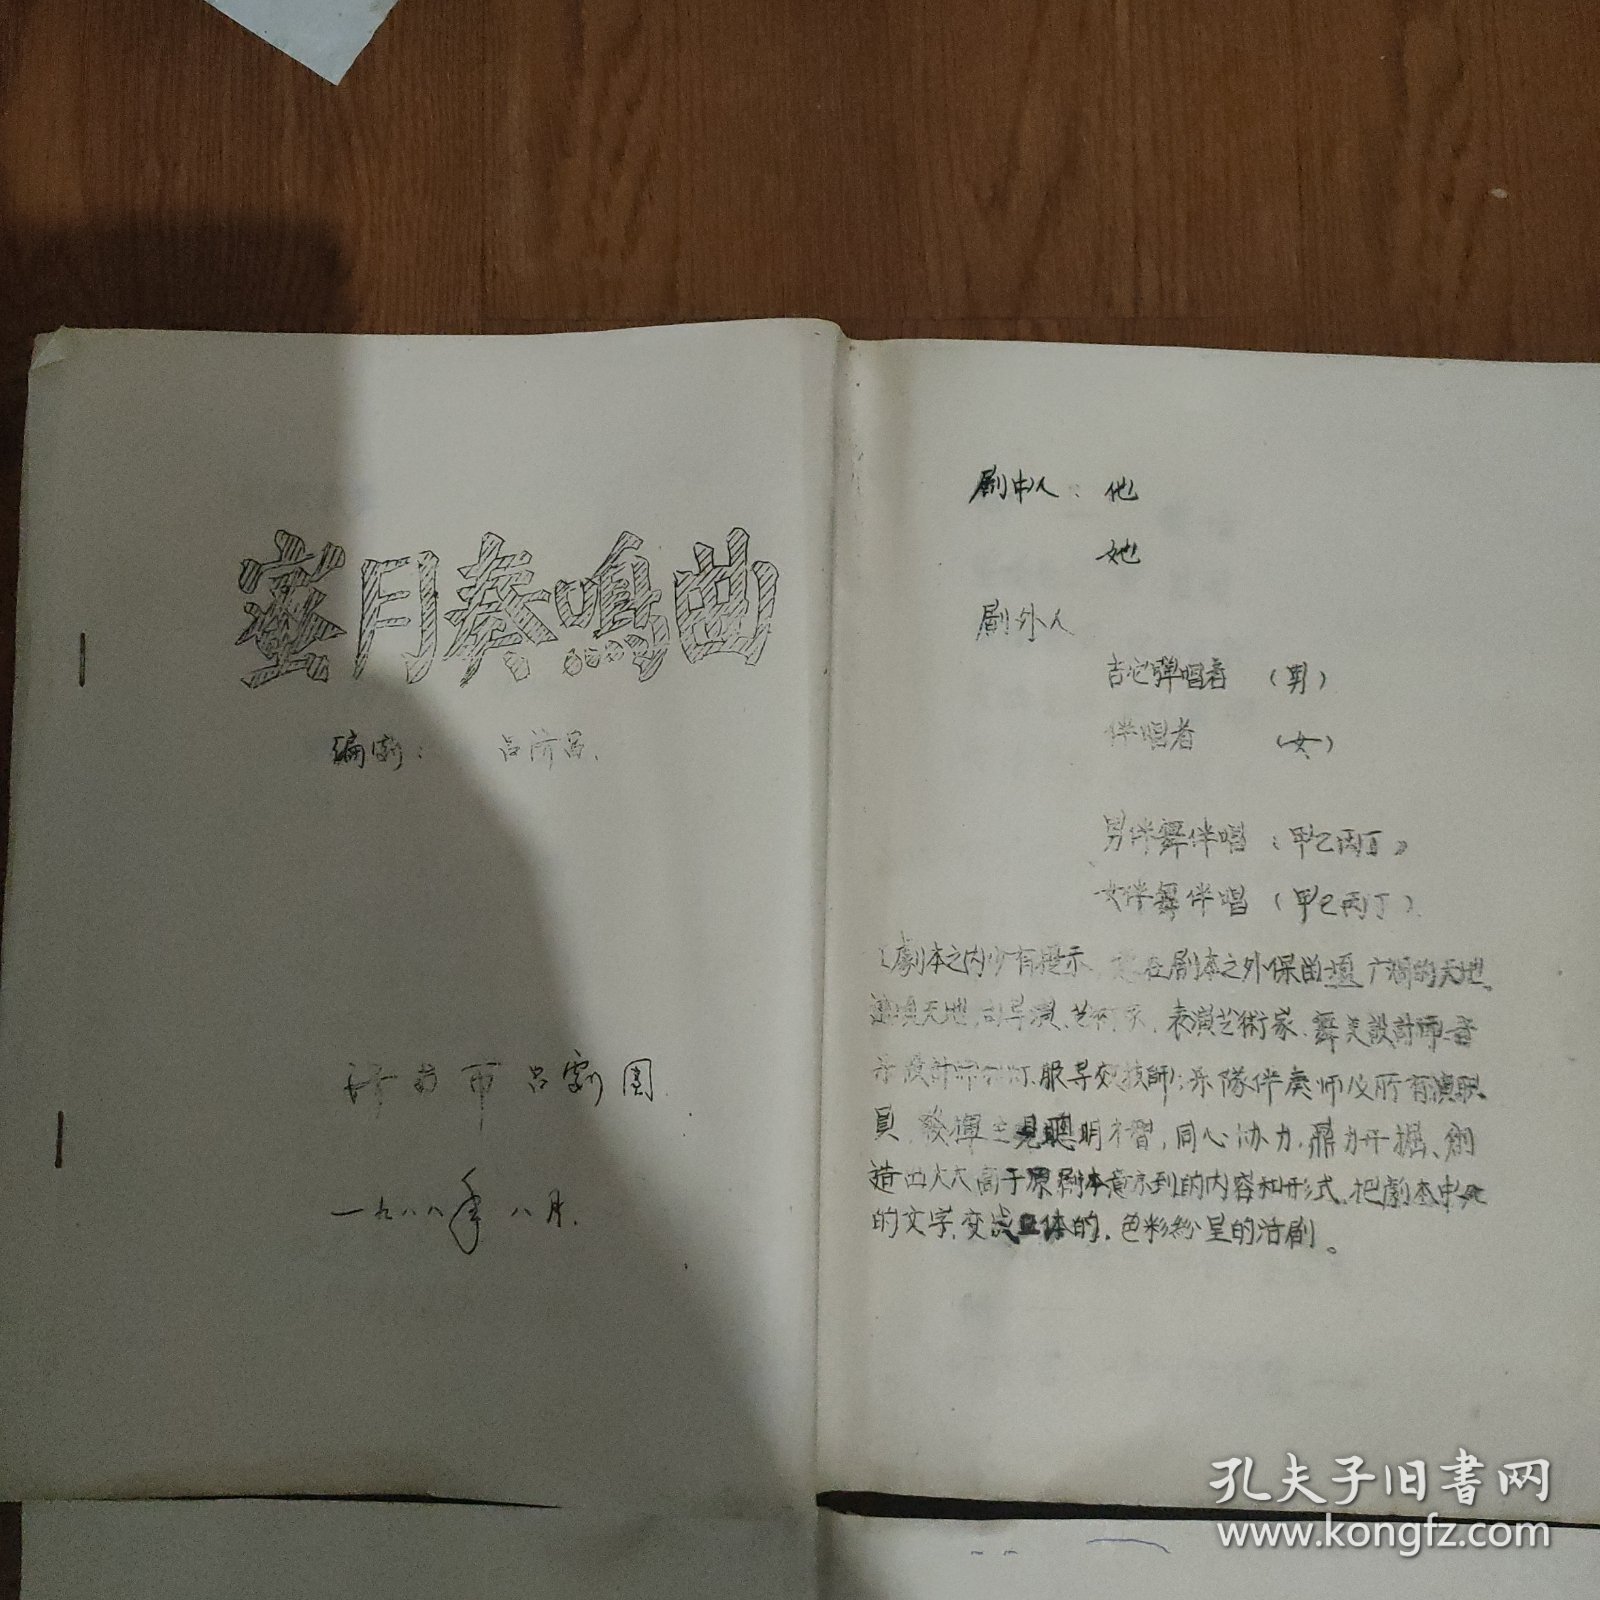 蜜月奏鸣曲
编劇： 吕济昌.
济南市吕劇團
一九八八年八月.
剧中人：他
她
剧外人
吉它弹唱者（男）
伴唱者（女）
男伴舞伴唱（甲乙丙丁）
女伴舞伴唱（甲乙丙丁）
劇本之内少有提示 在剧本之外保留 广阔的天地。
天地 导演、艺術家、表演艺術家、舞美設計師、音
设计 服导效技師；乐隊伴奏师及所有演职
員 發揮 見聰明才智，同心协力，鼎力开掘、創
造出大大高于原劇本意 到的内容和形式，把劇本中
的文字，变成立体的，色彩纷呈的活剧。
孔夫子旧書网
www.kongfz.com